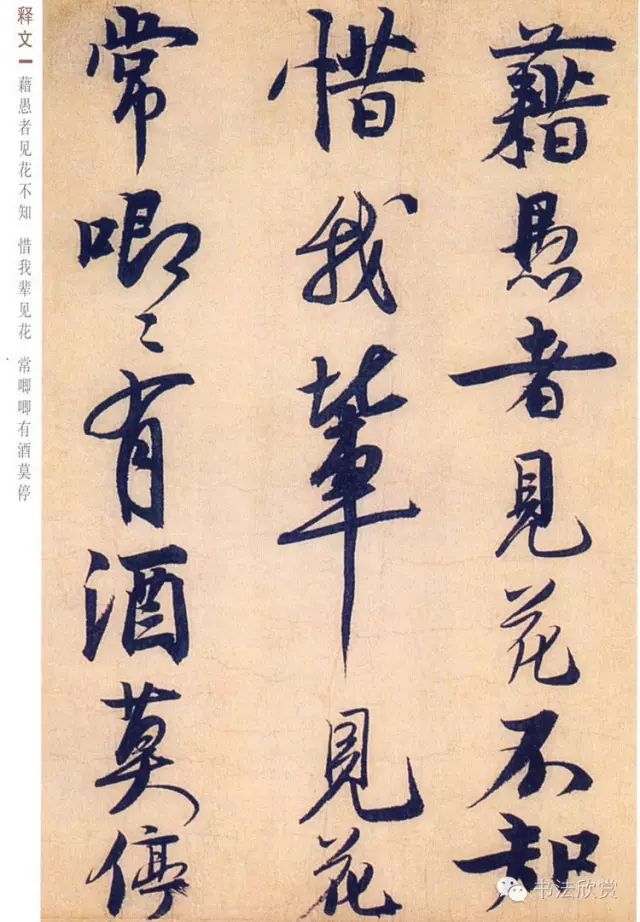 藉愚者見花不知
惜我輩見花
常唧〻有酒莫停
释文一 藉愚者见花不知 惜我辈见花 常唧唧有酒莫停
书法欣赏